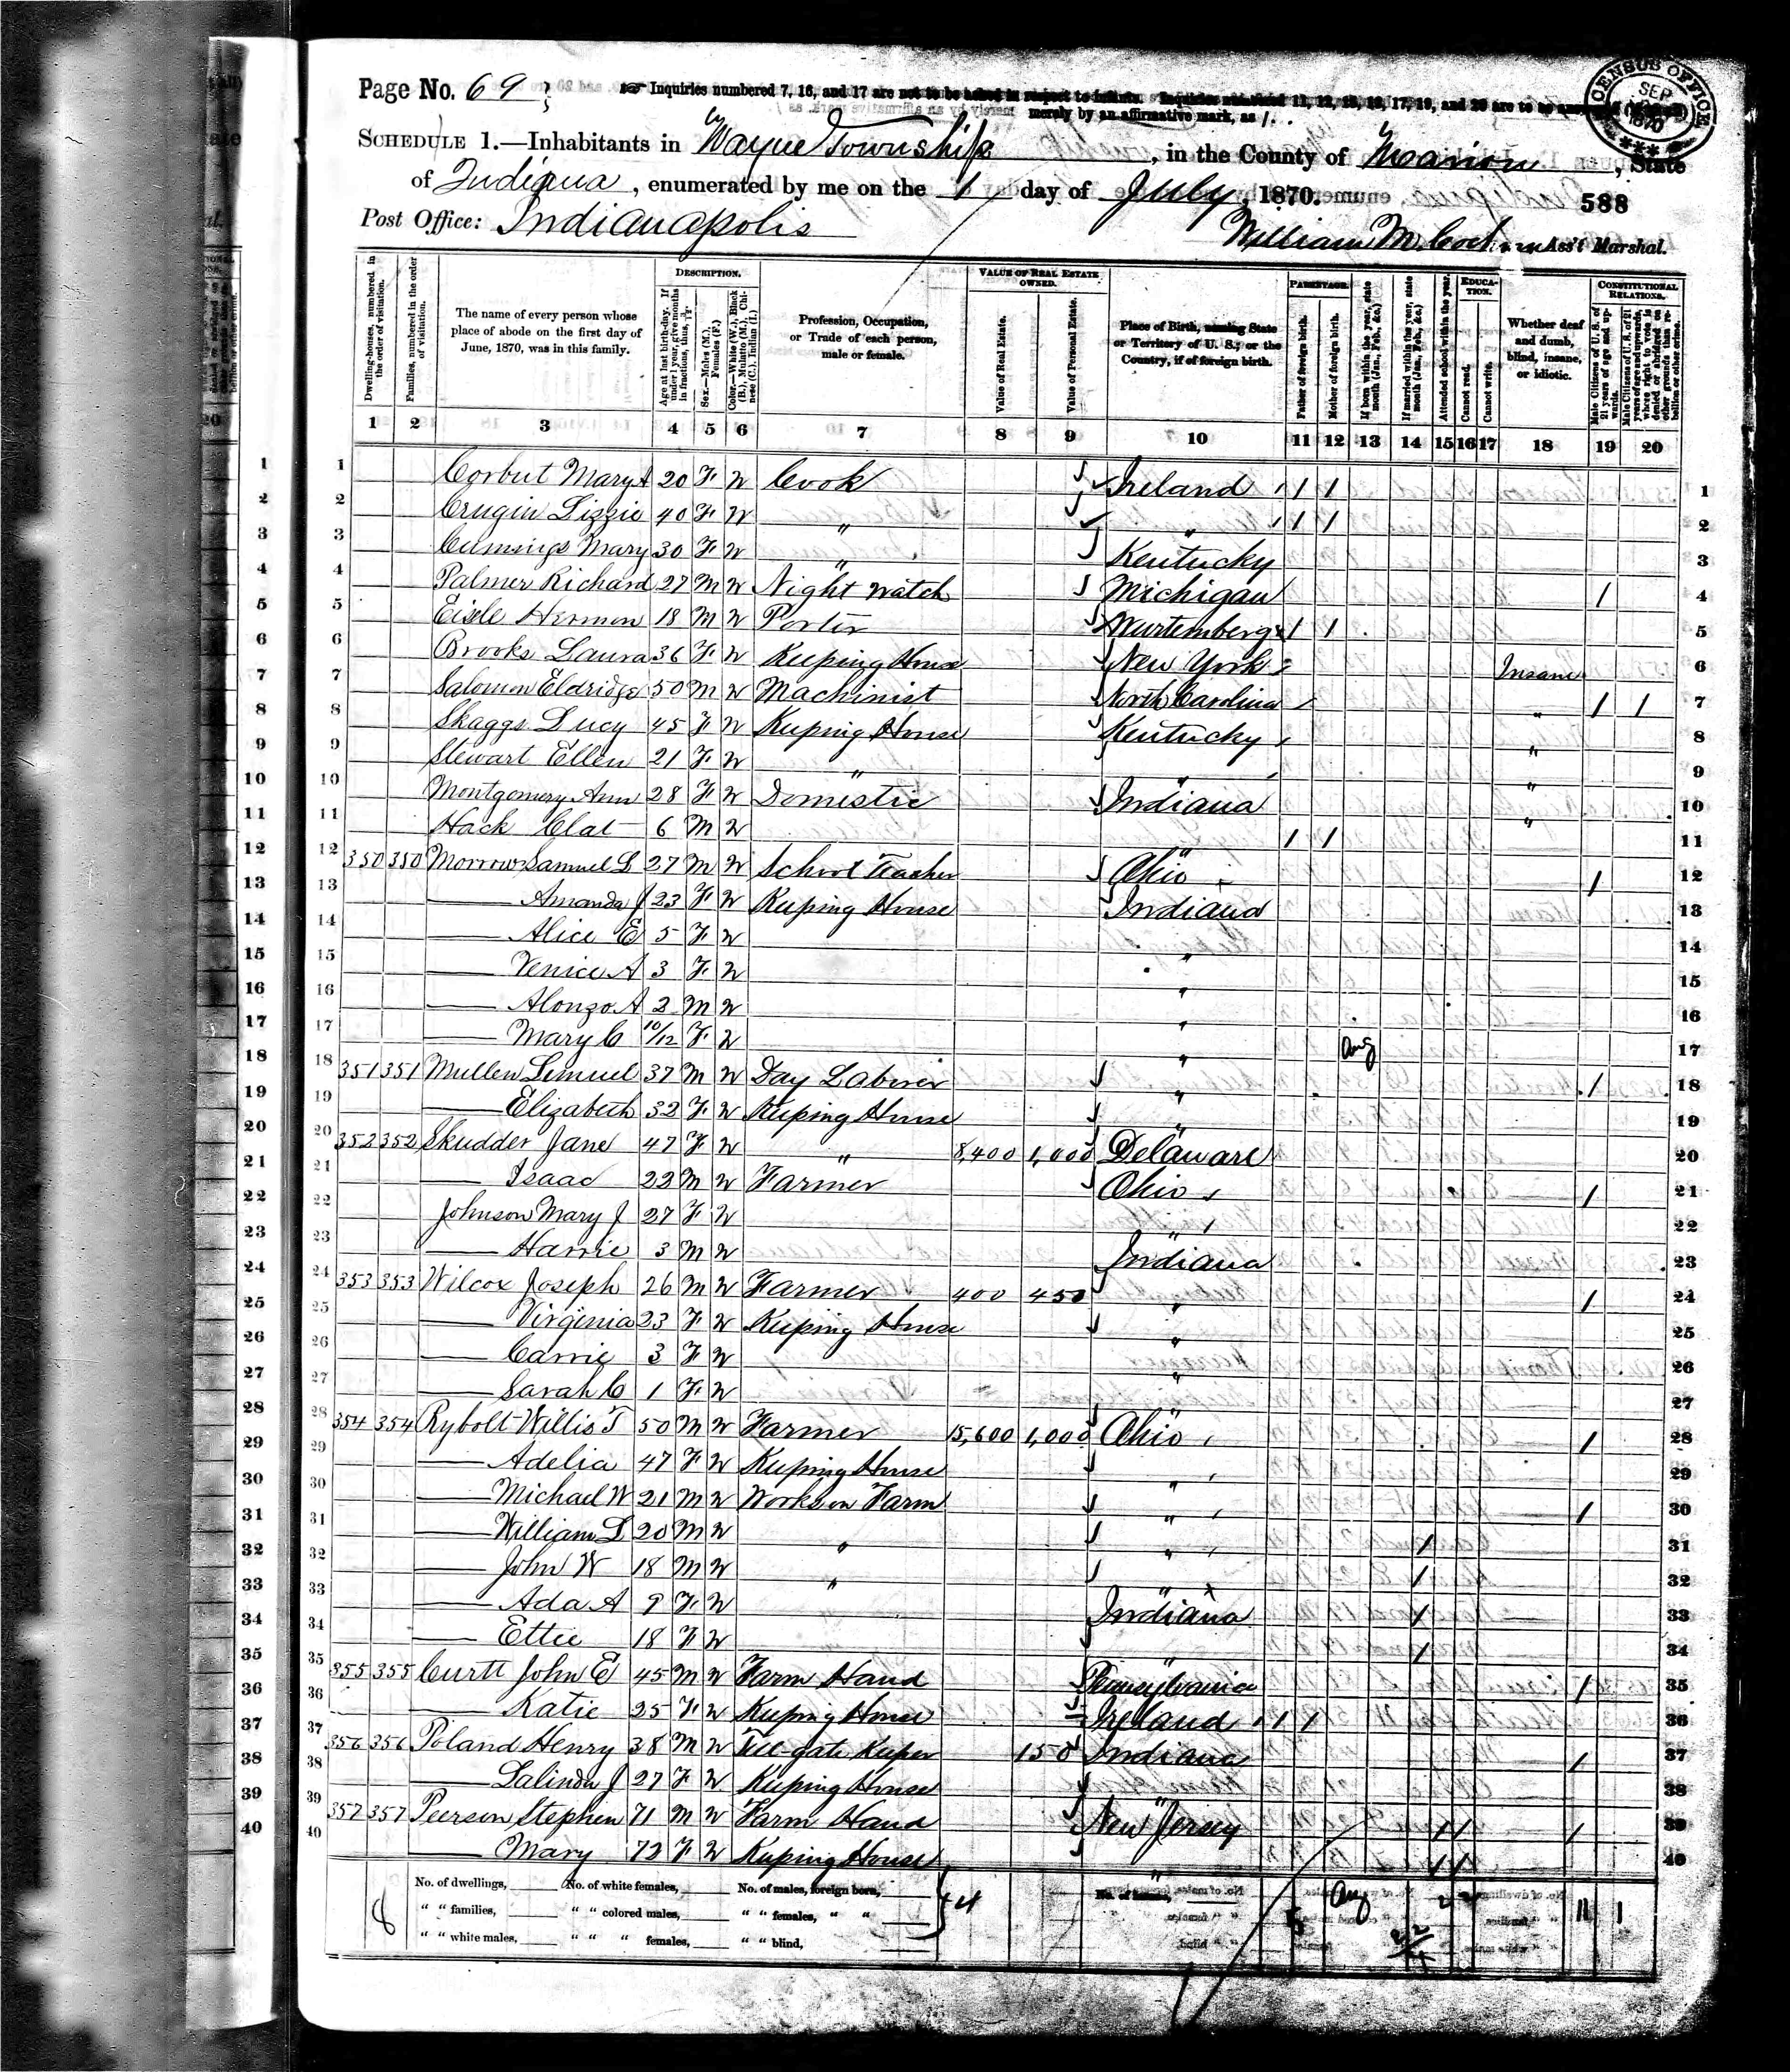 Page No. 69
Inquiries numbered 7, 16, and 17 are not to be asked in respect to infants. Inquiries numbered 11, 12, 15, 16, 17, 19, and 20 are to be answered
merely by an affirmative mark, as /.
CENSUS OFFICE SEP 1870
SCHEDULE 1.—Inhabitants in Wayne Township, in the County of Marion, State
of Indiana, enumerated by me on the 1 day of July, 1870.
588
Post Office: Indianapolis
William M. Ass't Marshal.
Dwelling-houses, numbered in the order of visitation.
Families, numbered in the order of visitation.
The name of every person whose place of abode on the first day of June, 1870, was in this family.
DESCRIPTION.
Age at last birth-day. If under 1 year, give months in fractions, thus, 3/12.
Sex.—Males (M.), Females (F.)
Color.—White (W.), Black (B.), Mulatto (M.), Chinese (C.), Indian (I.)
Profession, Occupation, or Trade of each person, male or female.
VALUE OF REAL ESTATE OWNED.
Value of Real Estate.
Value of Personal Estate.
Place of Birth, naming State or Territory of U. S.; or the Country, if of foreign birth.
PARENTAGE.
Father of foreign birth.
Mother of foreign birth.
If born within the year, state month (Jan., Feb., &c.)
If married within the year, state month (Jan., Feb., &c.)
Attended school within the year.
EDUCATION.
Cannot read.
Cannot write.
Whether deaf and dumb, blind, insane, or idiotic.
CONSTITUTIONAL RELATIONS.
Male Citizens of U. S. of 21 years of age and upwards.
Male Citizens of U. S. of 21 years of age and upwards, whose right to vote is denied or abridged on other grounds than rebellion or other crime.
1 2 3 4 5 6 7 8 9 10 11 12 13 14 15 16 17 18 19 20
1 Corbut Mary A 20 F W Cook Ireland 1 1 1
2 Crugin Lizzie 40 F W " " 1 1 2
3 Cummings Mary 30 F W " Kentucky 3
4 Palmer Richard 27 M W Night Watch Michigan 1 4
5 Eisle Hermon 18 M W Porter Wurtemberg 1 1 5
6 Brooks Laura 36 F W Keeping House New York Insane 6
7 Salomon Eldridge 50 M W Machinist North Carolina " 1 1 7
8 Skaggs Lucy 45 F W Keeping House Kentucky " 8
9 Stewart Ellen 21 F W " " " 9
10 Montgomery Ann 28 F W Domestic Indiana " 10
11 Hack Clat 6 M W " 1 1 11
12 350 350 Morrow Samuel L 27 M W School Teacher Ohio 1 12
13 —— Amanda J 23 F W Keeping House Indiana 13
14 —— Alice E 5 F W " 14
15 —— Venice A 3 F W " 15
16 —— Alonzo A 2 M W " 16
17 —— Mary C 10/12 F W " Aug 17
18 351 351 Mullen Lemuel 37 M W Day Laborer " 1 18
19 —— Elizabeth 32 F W Keeping House " 19
20 352 352 Skudder Jane 47 F W " 8,400 1,000 Delaware 20
21 —— Isaac 22 M W Farmer Ohio 1 21
22 Johnson Mary J 27 F W " 22
23 —— Harrie 3 M W Indiana 23
24 353 353 Wilcox Joseph 26 M W Farmer 400 450 " 1 24
25 —— Virginia 23 F W Keeping House " 25
26 —— Carrie 3 F W " 26
27 —— Sarah C 1 F W " 27
28 354 354 Rybolt Willis T 50 M W Farmer 15,600 1,000 Ohio 1 28
29 —— Adelia 47 F W Keeping House " 29
30 —— Michael W 21 M W Works on Farm " 1 30
31 —— William L 20 M W " " 1 31
32 —— John W 18 M W " " 1 32
33 —— Ada A 9 F W Indiana 1 33
34 —— Ettie 18 F W " 1 34
35 355 355 Curtt John E 45 M W Farm Hand Pennsylvania 1 35
36 —— Katie 25 F W Keeping House Ireland 1 1 36
37 356 356 Poland Henry 38 M W Toll gate Keeper 150 Indiana 1 37
38 —— Salinda J 27 F W Keeping House " 38
39 357 357 Peerson Stephen 71 M W Farm Hand New Jersey 1 1 1 39
40 —— Mary 72 F W Keeping House " 1 1 40
No. of dwellings, No. of white females, No. of males, foreign born,
" " families, " " colored males, " " females, " "
" " white males, " " " females, " " blind,
8 Aug 11 1